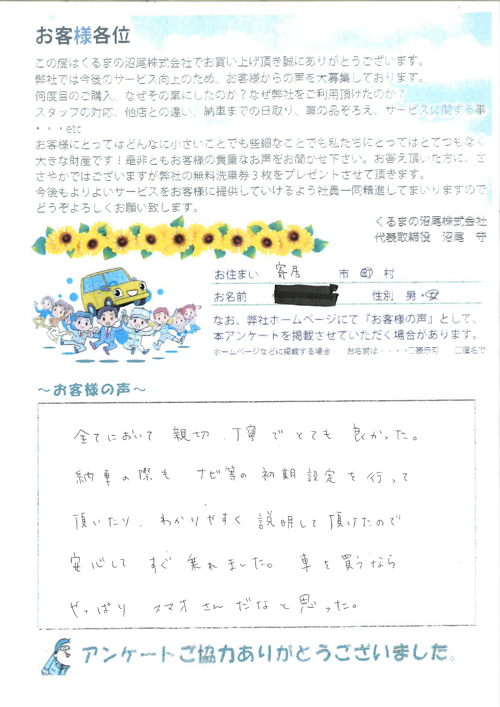 お客様各位
この度はくるまの沼尾株式会社でお買い上げ頂き誠にありがとうございます。
弊社では今後のサービス向上のため、お客様からの声を大募集しております。
何度目のご購入、なぜその車にしたのか？なぜ弊社をご利用頂けたのか？
スタッフの対応、他店との違い、納車までの日取り、車の品ぞろえ、サービスに関する事
・・・etc
お客様にとってはどんなに小さいことでも些細なことでも私たちにとってはとてつもなく
大きな財産です！是非ともお客様の貴重なお声をお聞かせ下さい。お答え頂いた方に、さ
さやかではございますが弊社の無料洗車券３枚をプレゼントさせて頂きます。
今後もよりよいサービスをお客様に提供していけるよう社員一同精進してまいりますので
どうぞよろしくお願い致します。
くるまの沼尾株式会社
代表取締役 沼尾 守
お住まい 寄居 市 町 村
お名前 性別 男・女
なお、弊社ホームページにて『お客様の声』として、
本アンケートを掲載させていただく場合があります。
ホームページなどに掲載する場合 お名前は・・・・□表示可 □匿名で
～お客様の声～
全てにおいて 親切、丁寧で とても 良かった。
納車の際も ナビ等の 初期設定を行って
頂いたり、わかりやすく 説明して頂けたので
安心して すぐ 乗れました。車を買うなら
やっぱり ヌマオさんだなと思った。
アンケートご協力ありがとうございました。